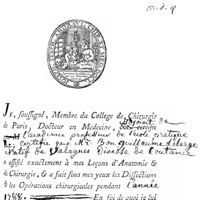 JE, soussigné, Membre du College de Chirurgie
de Paris, Docteur en Médecine, adjoint de
l'académie professeur de l'école pratique
certifie que Mr. Bon guillaume
natif de Valognes Diocèse de Coutance
a assisté exactement à mes Leçons d'Anatomie &
de Chirurgie, & a fait sous mes yeux les Dissections
& les Opérations chirurgicales pendant l'année
1788. En foi de quoi je lui